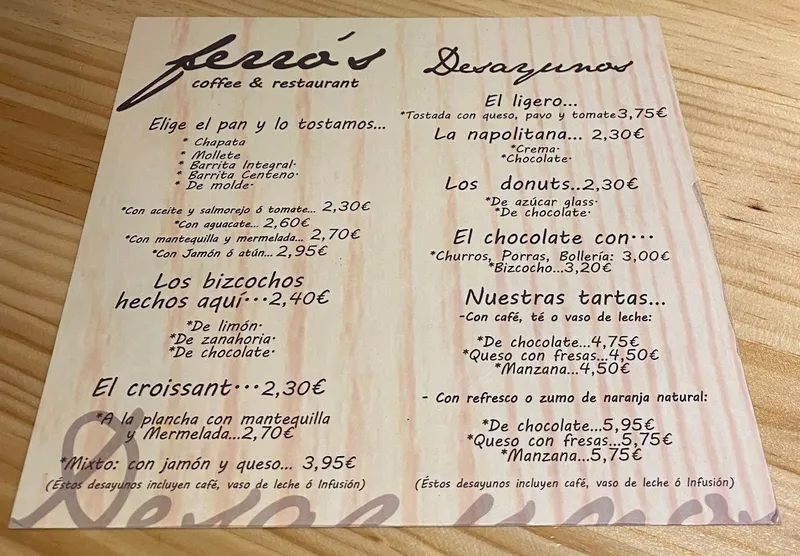 ferro's
coffee & restaurant
Elige el pan y lo tostamos...
* Chapata
* Mollete
* Barrita Integral·
* Barrita Centeno·
* De molde·
*Con aceite y salmorejo ó tomate... 2,30€
*Con aguacate... 2,60€
*Con mantequilla y mermelada... 2,70€
*Con Jamón ó atún... 2,95€
Los bizcochos
hechos aquí···2,40€
*De limón·
*De zanahoria·
*De chocolate·
El croissant···2,30€
*A la plancha con mantequilla
y Mermelada...2,70€
*Mixto: con jamón y queso... 3,95€
(Éstos desayunos incluyen café, vaso de leche ó Infusión)
Desayunos
El ligero...
*Tostada con queso, pavo y tomate3,75€
La napolitana... 2,30€
*Crema·
*Chocolate·
Los donuts..2,30€
*De azúcar glass·
*De chocolate·
El chocolate con···
*Churros, Porras, Bollería: 3,00€
*Bizcocho...3,20€
Nuestras tartas...
-Con café, té o vaso de leche:
*De chocolate...4,75€
*Queso con fresas...4,50€
*Manzana...4,50€
- Con refresco o zumo de naranja natural:
*De chocolate...5,95€
*Queso con fresas...5,75€
*Manzana...5,75€
(Éstos desayunos incluyen café, vaso de leche ó Infusión)
Desayunos